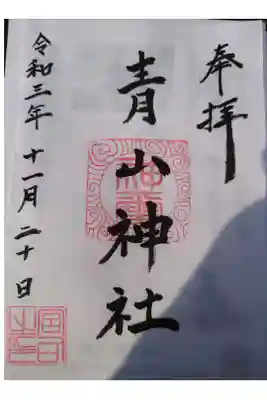 奉拝
青山神社
令和三年十一月二十日